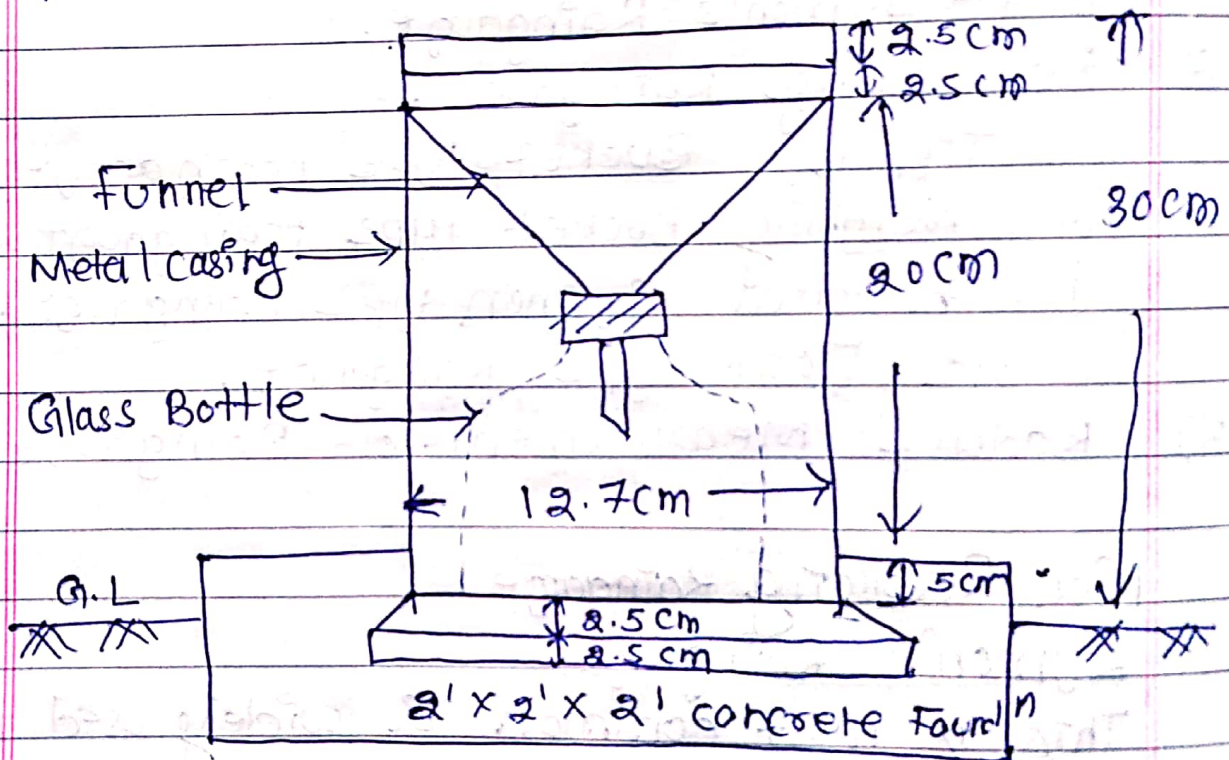 2.5cm
2.5cm
Funnel
30cm
Metal casing
20cm
Glass Bottle
12.7cm
5cm
G.L
2.5cm
2.5cm
2' x 2' x 2' concrete Found^n